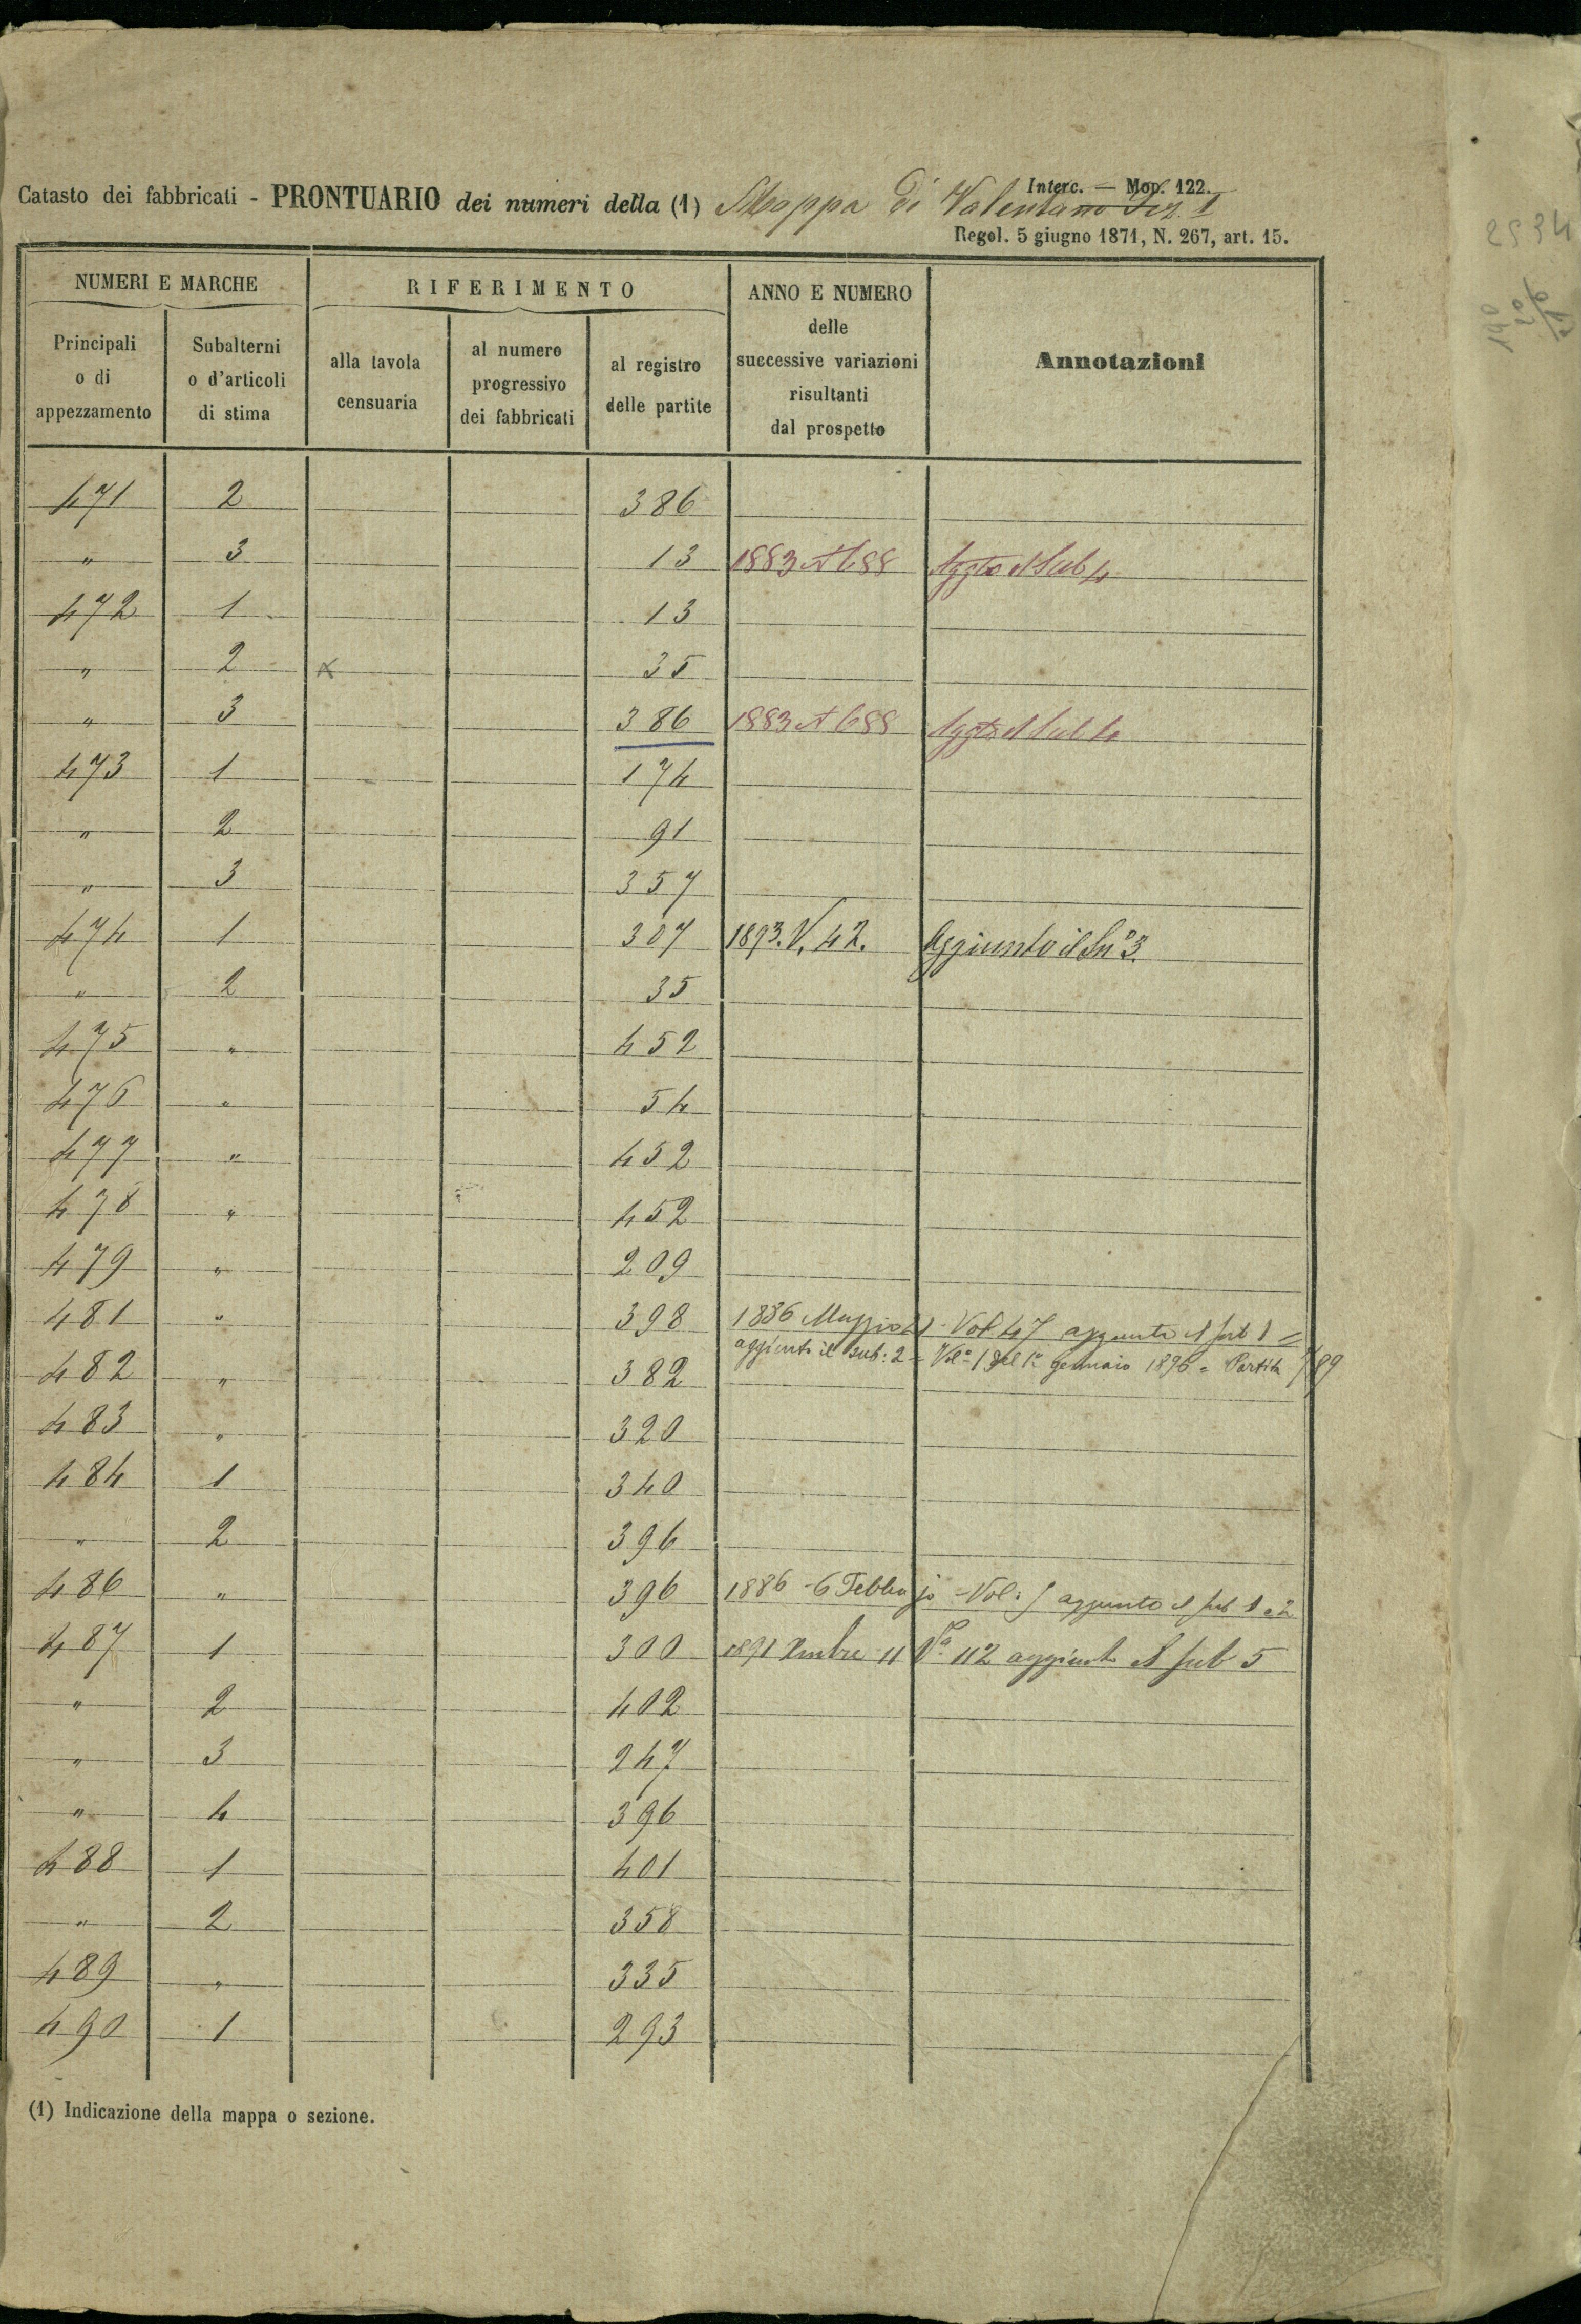 Interc. — Mod. 122.
Catasto dei fabbricati - PRONTUARIO dei numeri della (1) Mappa di Valentano Sez. I
Regol. 5 giugno 1871, N. 267, art. 15.
2534
NUMERI E MARCHE
RIFERIMENTO
ANNO E NUMERO
delle
successive variazioni
risultanti
dal prospetto
Annotazioni
Principali
o di
appezzamento
Subalterni
o d'articoli
di stima
alla tavola
censuaria
al numero
progressivo
dei fabbricati
al registro
delle partite
471 2 386
" 3 13 1883 688 Aggto il Sub 4
472 1 13
" 2 x 35
" 3 386 1883 688 Aggto il Sub 4
473 1 174
" 2 91
" 3 357
474 1 307 1893. V. 42. Aggiunto il Sn° 3.
" 2 35
475 " 452
476 " 54
477 " 452
478 " 452
479 " 209
481 " 398 1886 Maggio 21 Vol 47 aggiunto il sub 1 =
aggiunto il sub: 2 = Vol° 1 del 1° Gennaio 1896 = Partita 789
482 " 382
483 " 320
484 1 340
" 2 396
486 " 396 1886 - 6 Febbrajo - Vol: 5 aggiunto il sub 1 e 2
487 1 300 1891 Xmbre 11 Va 112 aggiunto il sub 5
" 2 402
" 3 247
" 4 396
488 1 401
" 2 358
489 " 335
490 1 293
(1) Indicazione della mappa o sezione.